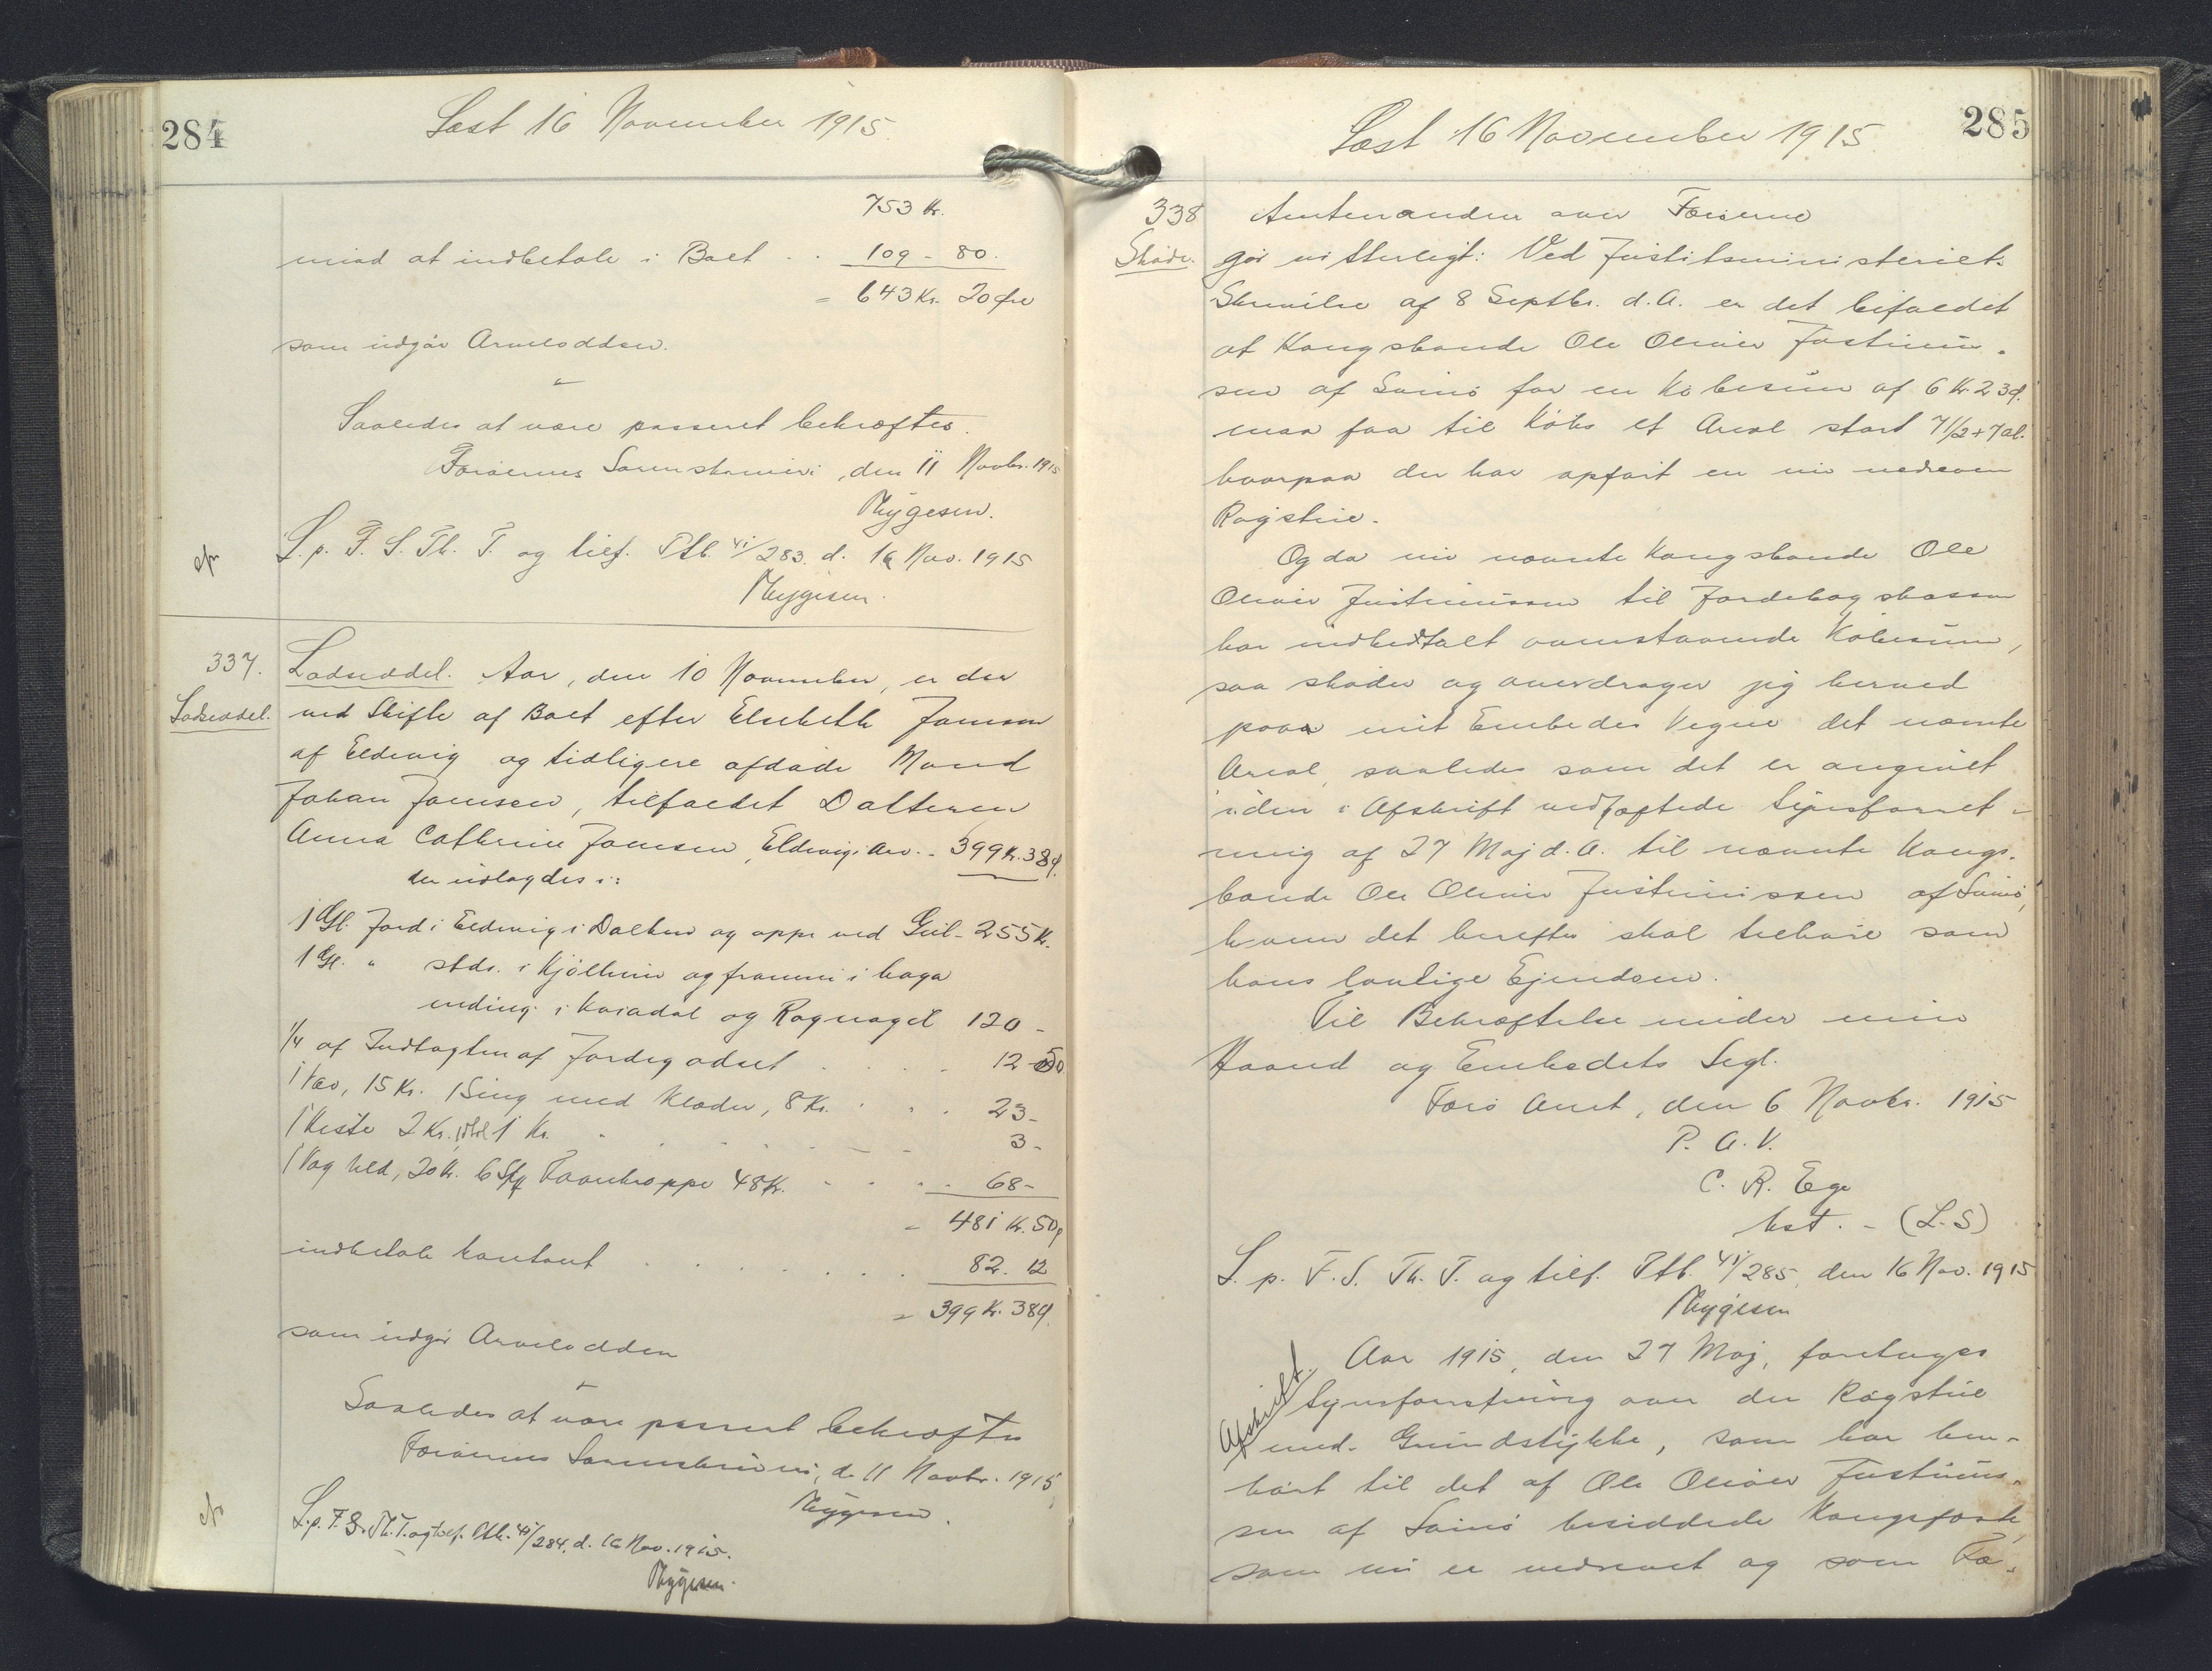 284
Læst 16 November 1915.
753 Kr.
mod at indbetale i Boet . . 109 - 80.
= 643 Kr. 20 Øre
som udgør Arvelodden.
Saaledes at være passeret bekræftes.
Færøernes Sorenskriveri, den 11 Novbr. 1915
Mygesen.
L. p. F. S. Th. T. og tilf. Ptb. 41/283. d. 16 Nov. 1915
Mygesen.
337. Lodseddel. Aar, den 10 November, er der
Lodseddel. ved Skifte af Boet efter Elsebeth Joensen
af Eldevig og tidligere afdøde Mand
Johan Joensen, tilfaldet Datteren
Anna Cathrine Joensen, Eldevig i Arv. - 399 Kr. 38 Ø.
der udlagdes i:
1 Gl. Jord i Eldevig i Dalken og oppe ved Giil - 255 Kr.
1 Gl. " stds. i Kjølhein og frammi i haga
undiug. i Koiadal og Rognagil 120 -
1/4 af Indtægten af Jordegodset . . . . 12 - 50
1 Væv, 15 Kr. 1 Seng med Klæder, 8 Kr. . . . 23 -
1 Kiste 2 Kr. 1 Kr. - . - - - - 3 -
1 Vog Uld, 20 Kr. 6 Stk Faarekroppe 48 Kr. - . . . 68 -
= 481 Kr. 50 Ø
indbetale kontant . . . . . . . 82. 12
= 399 Kr. 38 Ø.
som udgør Arvelodden
Saaledes at være passeret bekræftes
Færøernes Sorenskriveri, d. 11 Novbr. 1915
Mygesen.
L. p. F. S. Th. T. og tilf. Ptb. 41/284. d. 16 Nov. 1915.
Mygesen.
285
Læst 16 November 1915
338 Amtmanden over Færøerne
Skøde. gør vitterligt: Ved Justitsministeriets
Skrivelse af 8 Septbr. d. A. er det bifaldet
at Kongsbonde Ole Olivier Justinus-
sen af Svinø for en Købesum af 6 Kr. 23 Ø.
maa faa til Købs et Areal stort 7 1/2 + 7 al.
hvorpaa der har opført en nu nedreven
Røgstue.
Og da nu nævnte Kongsbonde Ole
Olivier Justinussen til Jordebogskassen
har indbetalt ovenstaaende Købesum,
saa skøder og overdrager jeg herved
paa mit Embedes Vegne det nævnte
Areal, saaledes som det er angivet
i den i Afskrift vedhæftede Synsforret-
ning af 27 Maj d. A. til nævnte Kongs-
bonde Ole Olivier Justinussen af Svinø,
hvem det herefter skal tilhøre som
hans lovlige Ejendom.
Til Bekræftelse under min
Haand og Embedets Segl.
Færø Amt, den 6 Novbr. 1915
P. A. V.
C. R. Ege
kst. - (L. S)
L. p. F. S. Th. T. og tilf. Ptb. 41/285, den 16 Nov. 1915
Mygesen
Afskrift. Aar 1915, den 27 Maj, foretages
Synsforretning over den Røgstue
med Grundstykke, som har hen-
hørt til det af Ole Olivier Justinus-
sen af Svinø besiddede Kongsfæste,
som nu er nedrevet og som Fæ-